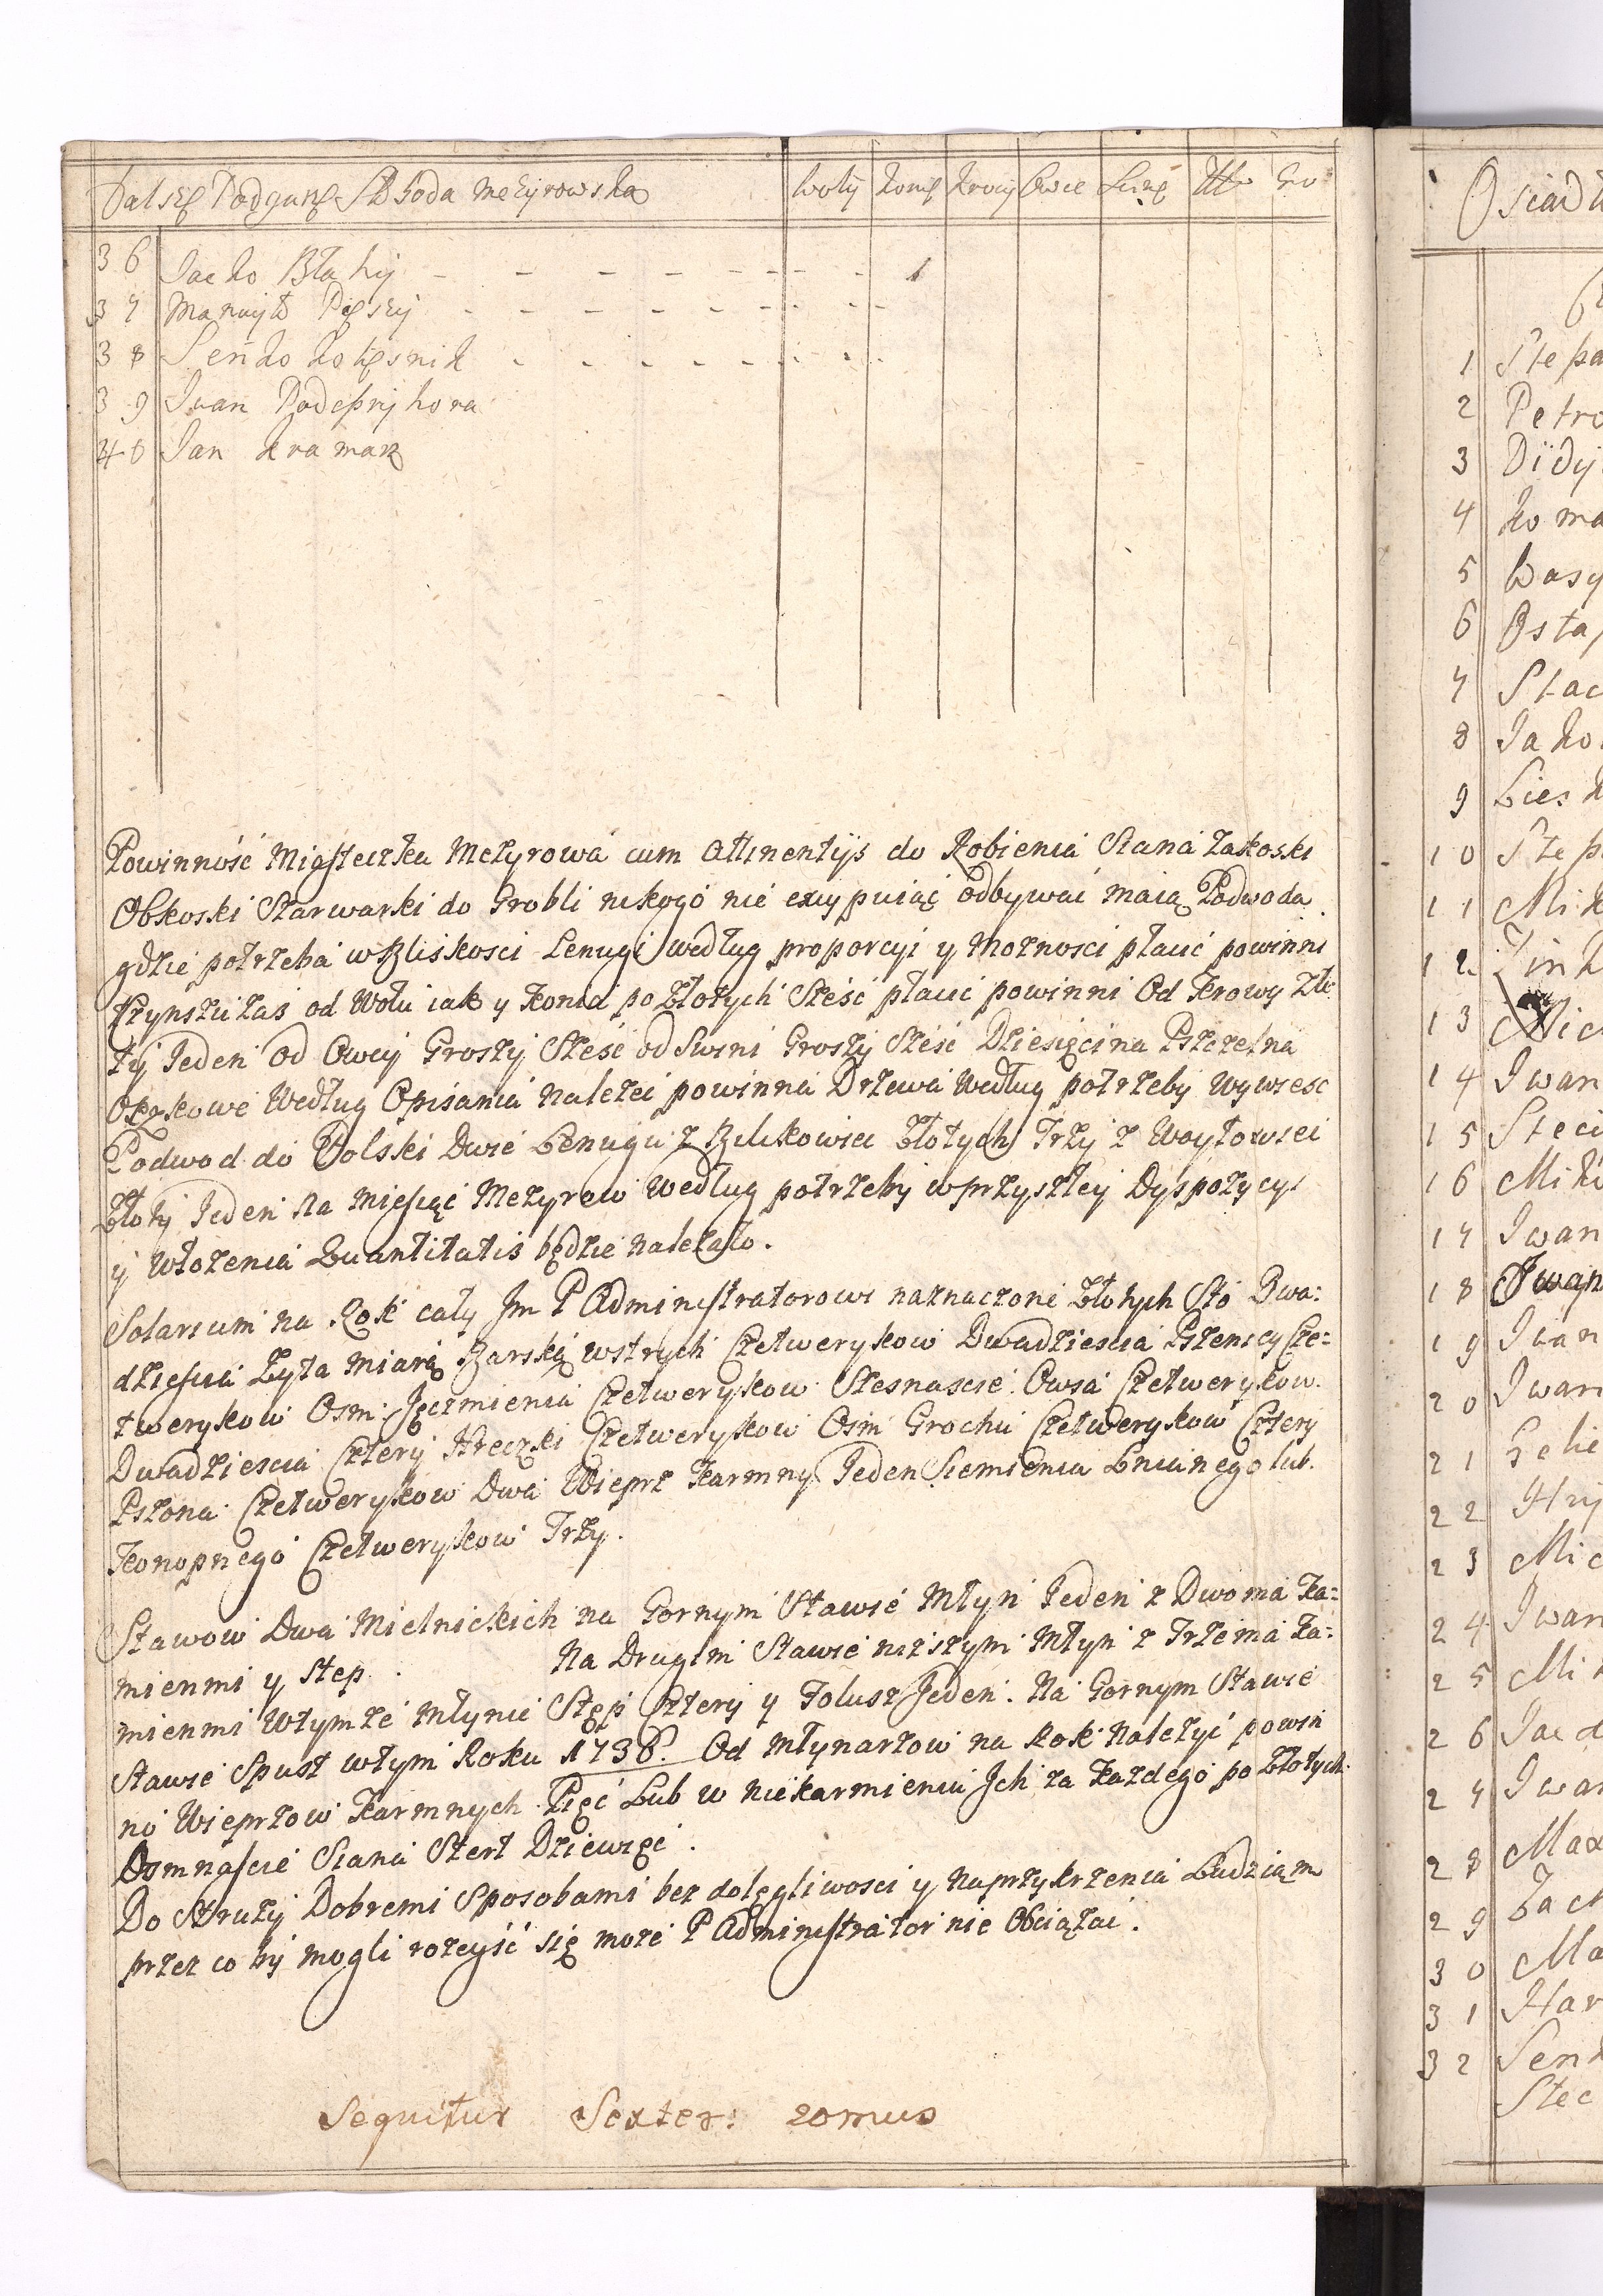 Dalsze Podgurze Słoboda Mezyrowska Woły Konie Krowy Owce Swinie
36 Jacko Błahij 1
37 Manuyło Pieszy
38 Seńko Kolesnik
39 Iwan Podepryhora
40 Jan Kramarz
Powinność Miasteczka Mezyrowa cum attinentÿs do Robienia Siana Zakoski
Obkoski Szarwarki do Grobli nikogo nie excypuiąc odbywać maią Podwoda
gdzie potrzeba w Bliskosci Lenugi według proporcyi y możnosci płacić powinni
Czynszu zas od Wołu iak y Konia po Złotych Sześć płacić powinni Od Krowy Zło
ty Jeden od Owcy Groszy Sześć od Swini Groszy Sześć Dziesięcina Pszczelna
Oczkowe Według Opisania należeć powinna Drzewa Według potrzeby wywieść
Podwod do Polski Dwie Lenugu z Bilikowiec Złotych Trzy z Woytowiec
Złoty Jeden na Miesiąc Mezyrow według potrzeby w przyszłey Dyspozycyi
y Włożenia Quantitatis będzie należało.
Solarium na Rok cały Jm P Administratorowi naznaczone Złotych Sto Dwa:
dziescia Żyta miarą Barską wstrych Czetwerykow Dwadziescia Pszenicy Cze:
twerykow Osm: Jęczmienia Czetwerykow Szesnascie. Owsa Czetwerykow
Dwadziescia Cztery Hreczki Czetwerykow Osm Grochu Czetwerykow Cztery
Pszona Czetwerykow Dwa Wieprz Karmny Jeden Siemienia Lnianego lub
Konopnego Czetwerykow Trzy.
Stawow Dwa Mielnickich na Gornym Stawie Młyn Jeden z Dwoma Ka:
mienmi y Stęp. Na Drugim Stawie niższym Młyn z Trzema Ka:
mienmi Wtymże młynie Stęp Cztery y Folusz Jeden. Na Gornym Stawie
Stawie Spust wtym Roku 1738. Od Młynarzow na Rok należyć powin
no Wieprzow Karmnych Pięć Lub w niekarmieniu Jch za Każdego po Złotych
Osmnascie Siana Stert Dziewięć.
Do Struży Dobremi Sposobami bez dolegliwosci y naprzykrzenia Ludziom
przez co by mogli rozeyść się może P Administrator nie Obciążać.
Sequitur Sexter: 20mus
Osiadł
1 Stepa
2 Petro
3 Didy
4 Roma
5 Wasy
6 Osta
7 Stac
8 Jako
9 Lesk
10 Step
11 Mik
12 Zink
13 Mic
14 Iwan
15 Steci
16 Miki
17 Iwan
18 Iwan
19 Iwan
20 Iwan
21
22 Hry
23 Mic
24 Iwan
25 Mi
26 Jac
27 Iwan
28 Max
29 Zach
30 Ma
31 Har
32 Senk
Stec